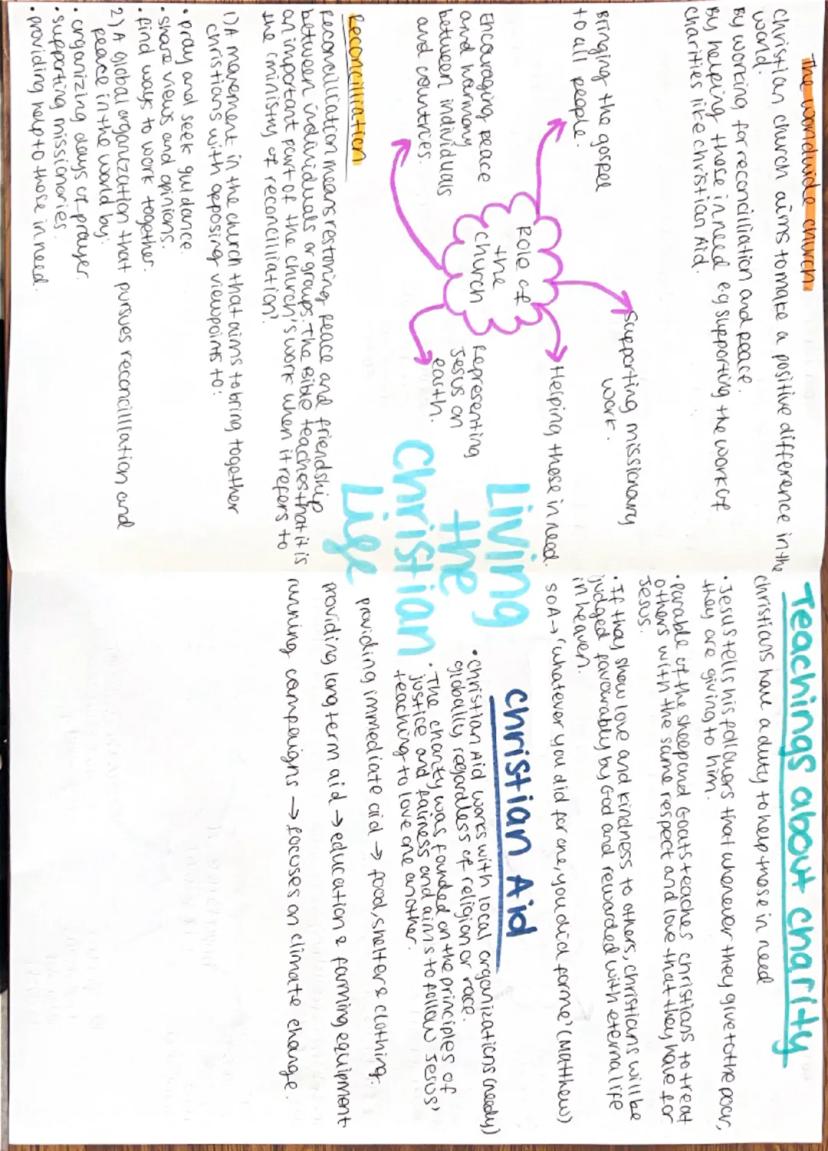 The worldwide church
Christian church aims to make a positive difference in the
world.
By working for reconcilliation and peace.
By helping those in need eg supporting the work of
charities like christian Aid.
Role of
the
church
Bringing the gospel
to all people.
Supporting missionary
work.
Helping those in need.
Encouraging peace
and harmony
between individuals
and countries.
Representing
Jesus on
earth.
Reconcilliation
Reconcilliation means restoring peace and friendship
between individuals or groups. The Bible teaches that it is
an important part of the church's work when it refers to
the 'ministry of reconcilliation'.
1) A movement in the church that aims to bring together
christians with opposing viewpoints to:
• pray and seek guidance.
• share views and opinions.
• find ways to work together.
2) A global organization that pursues reconcilliation and
peace in the world by:
• organizing days of prayer.
• supporting missionaries.
• providing help to those in need.
Living
the
Christian
Life
Teachings about charity
Christians have a duty to help those in need
• Jesus tells his followers that whenever they give to the poor,
they are giving to him.
• Parable of the sheep and Goats teaches christians to treat
others with the same respect and love that they have for
Jesus.
• If they show love and kindness to others, christians will be
judged favourably by God and rewarded with eternal life
in heaven.
SOA → 'whatever you did for one, you did for me' (Matthew)
Christian Aid
• Christian Aid works with local organizations (needy)
globally regardless of religion or race.
• The charity was founded on the principles of
justice and fairness and aims to follow Jesus'
teaching to love one another.
providing immediate aid → food, shelter & clothing.
providing long term aid → education & farming equipment
running campaigns → focuses on climate change.